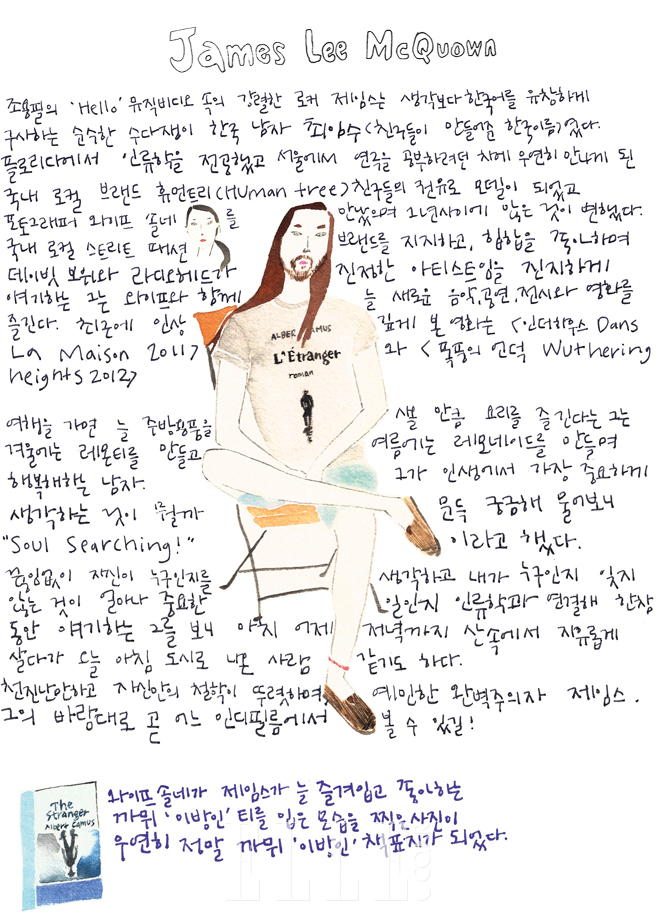 James Lee McQuown
조용필의 'Hello' 뮤직비디오 속의 강렬한 로커 제임스는 생각보다 한국어를 유창하게
구사하는 순수한 수다쟁이 한국 남자 최임수<친구들이 만들어준 한국이름>였다.
플로리다에서 인류학을 전공했고 서울에서 연극을 공부하려던 차에 우연히 만나게 된
국내 로컬 브랜드 휴먼트리(Human tree) 친구들의 권유로 모델이 되었고
포토그래퍼 와이프 솔네를 만났으며 1년사이에 많은 것이 변했다.
국내 로컬 스트리트 패션 브랜드를 지지하고, 힙합을 좋아하며
데이빗 보위와 라디오헤드가 진정한 아티스트임을 진지하게
얘기하는 그는 와이프와 함께 늘 새로운 음악,공연,전시와 영화를
즐긴다. 최근에 인상 깊게 본 영화는 <인더하우스 Dans
La Maison 2011> 와 <폭풍의 언덕 Wuthering
heights 2012>
ALBERT CAMUS
L'Étranger
roman
여행을 가면 늘 주방용품을 살 만큼 요리를 즐긴다는 그는
겨울에는 레몬티를 만들고 여름에는 레모네이드를 만들며
행복해하는 남자. 그가 인생에서 가장 중요하게
생각하는 것이 뭘까 문득 궁금해 물어보니
"Soul Searching!" 이라고 했다.
끊임없이 자신이 누구인지를 생각하고 내가 누구인지 잊지
않는 것이 얼마나 중요한 일인지 인류학과 연결해 한참
동안 얘기하는 그를 보니 마치 어제 저녁까지 산속에서 자유롭게
살다가 오늘 아침 도시로 나온 사람 같기도 하다.
천진난만하고 자신만의 철학이 뚜렷하며, 예민한 완벽주의자 제임스.
그의 바람대로 곧 어느 인디필름에서 볼 수 있길!
The
Stranger
Albert Camus
와이프 솔네가 제임스가 늘 즐겨입고 좋아하는
까뮈 '이방인' 티를 입은 모습을 찍은사진이
우연히 정말 까뮈 '이방인' 책표지가 되었다.
ELLE